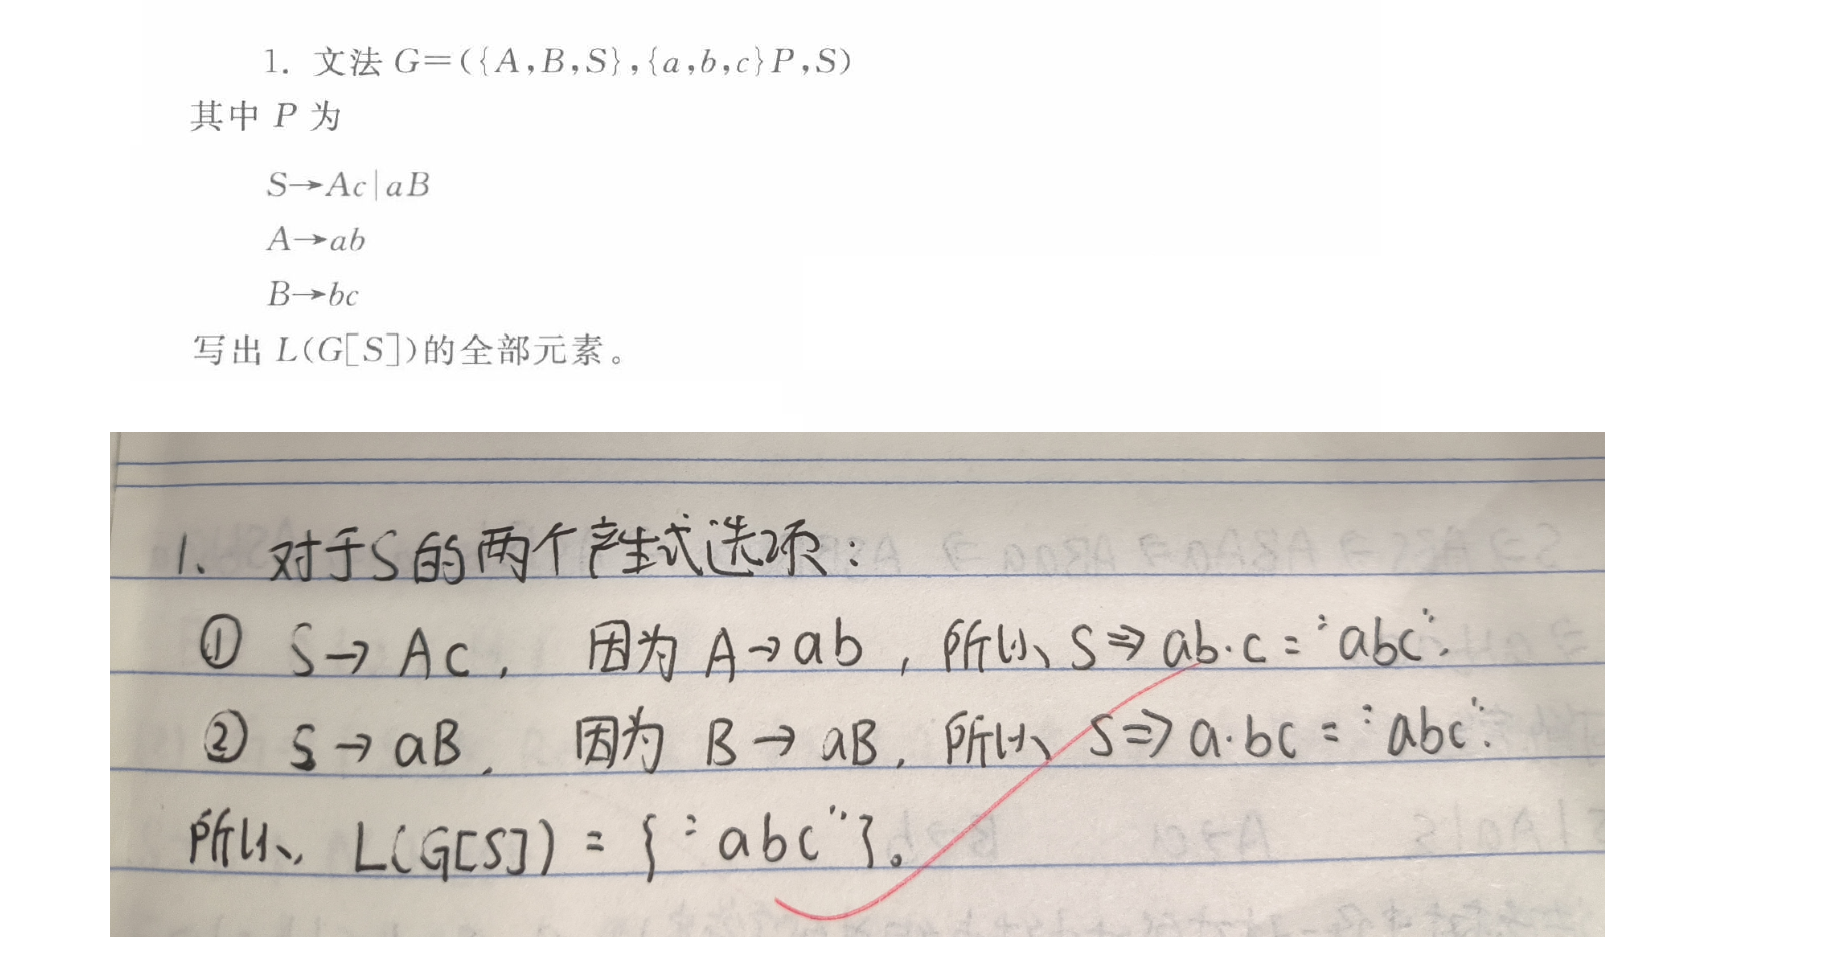 1. 文法 G=({A,B,S},{a,b,c}P,S)
其中 P 为
S→Ac|aB
A→ab
B→bc
写出 L(G[S])的全部元素。
1. 对于S的两个产生式选项：
① S→Ac, 因为 A→ab, 所以 S⇒ab·c="abc".
② S→aB, 因为 B→aB, 所以 S⇒a·bc="abc".
所以, L(G[S])={"abc"}。